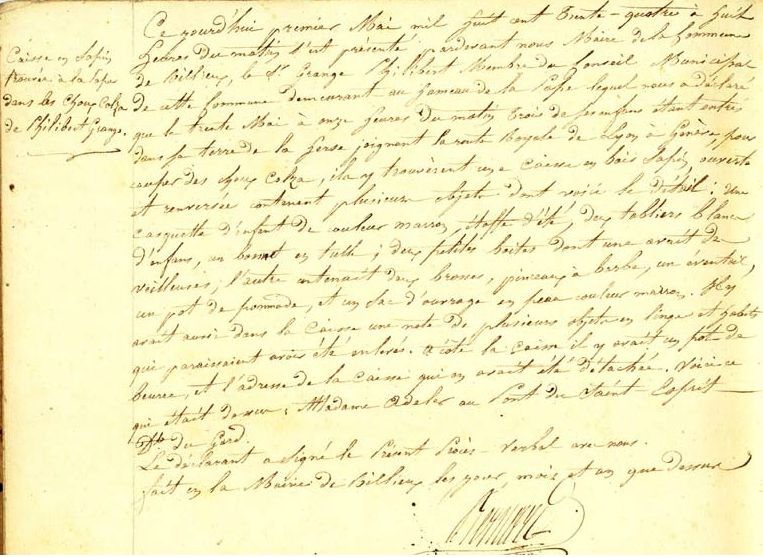 Caisse en Sapin
trouvée à la Pape
dans les Choux Colza
de Philibert Grange.
Ce jourd'hui premier Mai mil huit cent trente-quatre à huit
heures du matin s'est présenté pardevant nous Maire de la Commune
de Rillieux, le Sr. Grange Philibert Membre du Conseil Municipal
de cette Commune demeurant au hameau de la Pape lequel nous a déclaré
que le trente Mai à onze heures du matin trois de ses enfans étant entré
dans sa terre de la joignant la route Royale de Lyon à Genève, pour
couper des choux colza, ils y trouvèrent une Caisse en bois Sapin ouverte
et renversée contenant plusieurs objets dont voici le détail: une
casquette d'enfent de couleur marron, étoffe d'été, deux tabliers blancs
d'enfans, un bonnet en tulle; deux petites boites dont une avait de
veilleuses; l'autre contenait deux brosses, pinceaux à barbe, un éventail,
un pot de pommade, et un sac d'ouvrage en peau couleur marron. Il y
avait aussi dans la Caisse une note de plusieurs objets en linge et habits
qui paraissaient avoir été enlevés. à côté la caisse il y avait un pot de
beurre, et l'adresse de la caisse qui en avait été détachée. Voici ce
qui était dessus: Madame Adeler au Pont du Saint Esprit
Dt. du Gard.
Le déclarant a signé le Présent Procès-Verbal avec nous.
fait en la Mairie de Rillieux les jour, mois et an que dessus